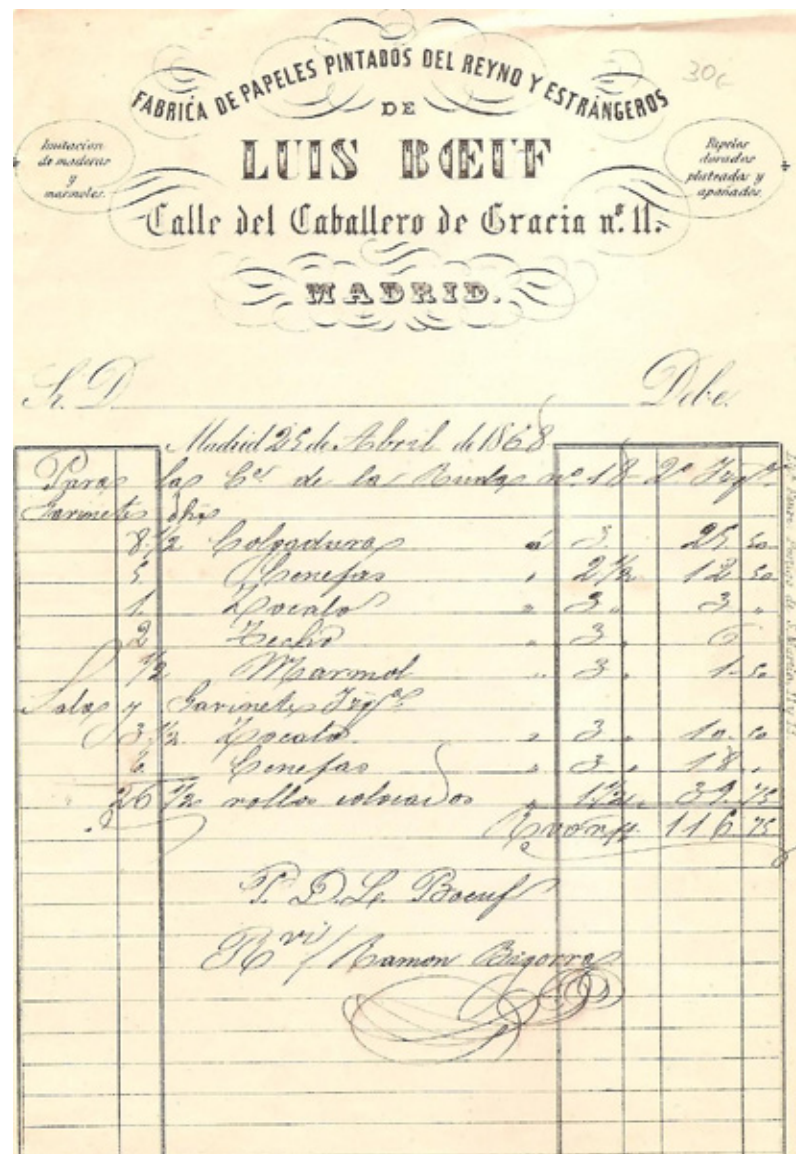 30c
FABRICA DE PAPELES PINTADOS DEL REYNO Y ESTRÁNGEROS
DE
LUIS BŒUF
Imitacion
de maderas
y
marmoles.
Papeles
dorados
plateados y
apañados.
Calle del Caballero de Gracia nº. 11.
MADRID.
Sr. D. Debe.
Madrid 25 de Abril de 1868
Para la Cª de la Ruda nº 18 2º
Gavinete
8 1/2 Colgadura á 3. 25 50
5 Cenefas 2 1/2 12 50
1. Zocalo " 3 " 3 "
2 Techo " 3 " 6
1/2 Marmol " 3 " 1 50
Sala y Gavinete
3 1/2 Zocalo " 3 " 10 50
6 Cenefas " 3 " 18 "
26 1/2 rollos colocados " 1 1/2 " 39 75
Rvon 116 75
P. D. L. Boeuf
Rví / Ramon Bigorra